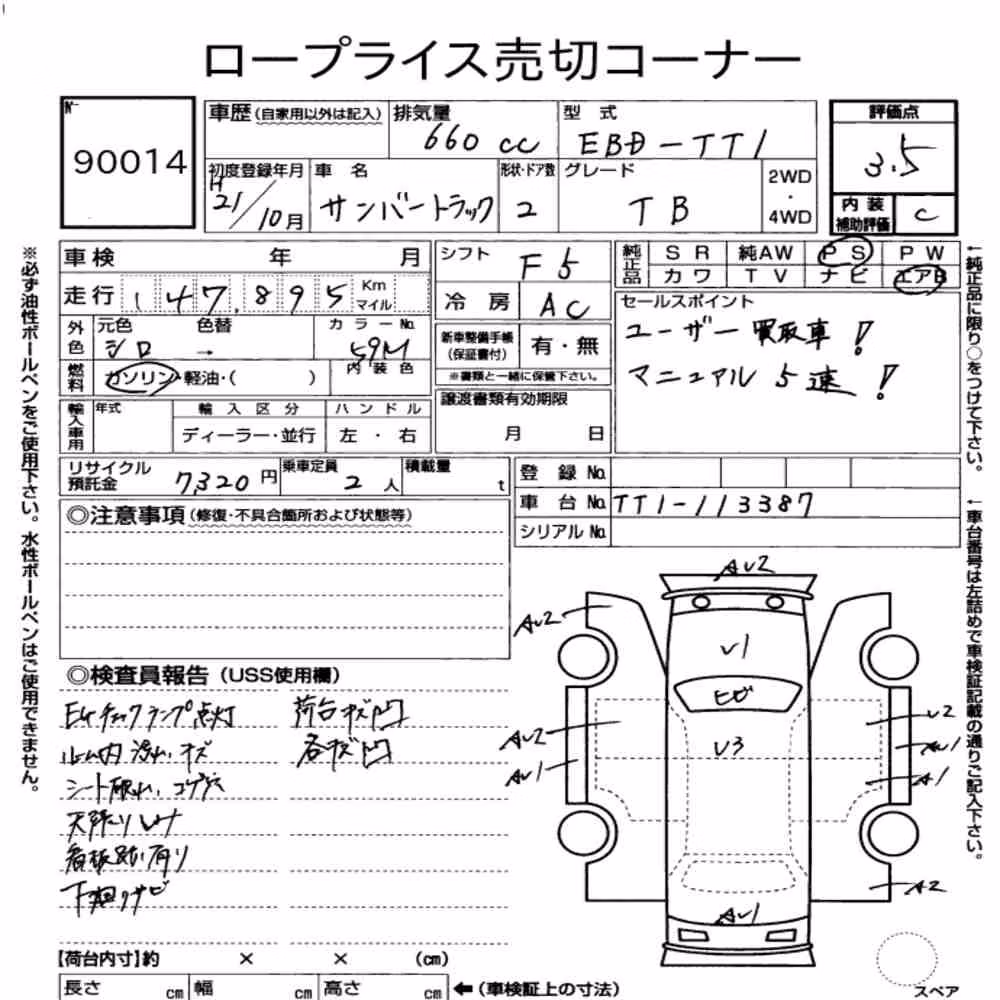 ロープライス売切コーナー
№
90014
車歴 (自家用以外は記入)
排気量
660 cc
型 式
EBD-TT1
評価点
3.5
初度登録年月
H21/10月
車 名
サンバートラック
形状・ドア数
2
グレード
TB
2WD
・
4WD
内 装
補助評価
C
車検 年 月
シフト
F5
純正品
SR 純AW PS PW
カワ TV ナビ エアB
走行 147,895 Km
マイル
冷 房
AC
セールスポイント
ユーザー買取車!
マニュアル5速!
外色
元色
シロ
色替
→
カラーNo.
59M
内装色
新車整備手帳
(保証書付)
有・無
※書類と一緒に保管下さい。
燃料
ガソリン・軽油・( )
譲渡書類有効期限
月 日
輸入車用
年式
輸入区分
ディーラー・並行
ハンドル
左・右
リサイクル
預託金
7,320 円
乗車定員
2 人
積載量
t
登録 No.
車台 No. TT1-113387
シリアル No.
◎注意事項 (修復・不具合箇所および状態等)
◎検査員報告 (USS使用欄)
EGチェックランプ点灯
ルーム内 汚れ、キズ
シート破れ、コゲ穴
天張り
看板跡有り
下廻りサビ
荷台キズ凹
各キズ凹
AU2
AU2
U1
ヒビ
U3
AU2
AU1
U2
AU1
A1
A2
AU1
【荷台内寸】約 × × (cm)
長さ cm 幅 cm 高さ cm
←(車検証上の寸法)
スペア
※必ず油性ボールペンをご使用下さい。水性ボールペンはご使用できません。
←純正品に限り○をつけて下さい。
←車台番号は左詰めで車検証記載の通りご記入下さい。